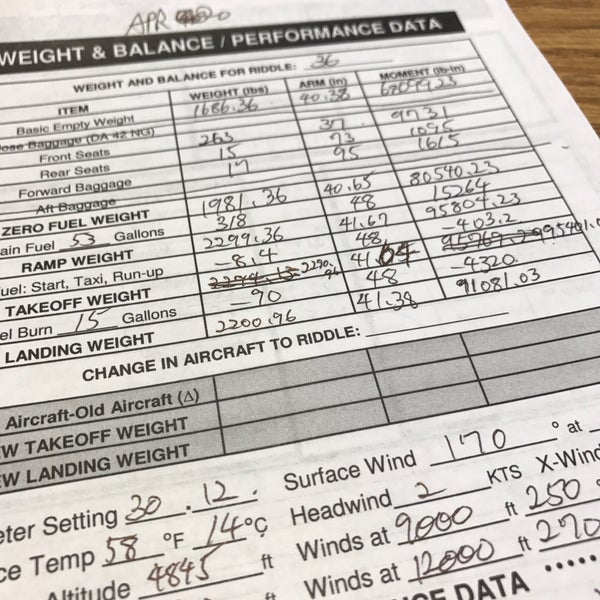 APR 2020
WEIGHT & BALANCE / PERFORMANCE DATA
WEIGHT AND BALANCE FOR RIDDLE: 36
ITEM WEIGHT (lbs) ARM (in) MOMENT (lb-in)
Basic Empty Weight 1686.36 40.38
ose Baggage (DA 42 NG)
Front Seats 263 37 9731
Rear Seats 15 73 1095
Forward Baggage 17 95 1615
Aft Baggage
ZERO FUEL WEIGHT 1981.36 40.65 80540.23
ain Fuel 53 Gallons 318 48 15264
RAMP WEIGHT 2299.36 41.67 95804.23
uel: Start, Taxi, Run-up -8.4 48 -403.2
TAKEOFF WEIGHT 2290.96 41.64
el Burn 15 Gallons -90 48 -4320
LANDING WEIGHT 2200.96 41.38 91081.03
CHANGE IN AIRCRAFT TO RIDDLE:
Aircraft-Old Aircraft (Δ)
EW TAKEOFF WEIGHT
EW LANDING WEIGHT
eter Setting 30.12. Surface Wind 170 ° at
ce Temp 58 °F 14 °C Headwind 2 KTS X-Wind
Altitude 4845 ft Winds at 9000 ft 250 °
ft Winds at 12000 ft 270
CE DATA .....